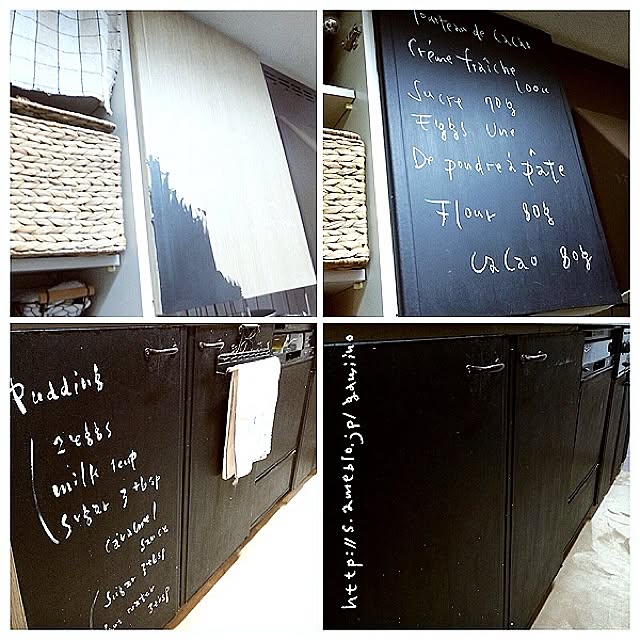 Gouteau de Cacao
Créme fraîche
100cc
Sucre 70g
Eggs Une
De poudre à pâte
Flour 80g
Cacao 80g
Pudding
2 eggs
milk 1cup
Sugar 3tbsp
Caramel
Sauce
Sugar 3tbsp
water 3tbsp
http://s.ameblo.jp/yawiino